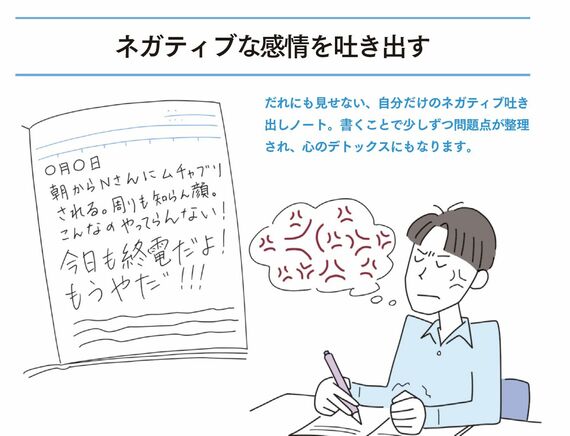 ネガティブな感情を吐き出す
だれにも見せない、自分だけのネガティブ吐き
出しノート。書くことで少しずつ問題点が整理
され、心のデトックスにもなります。
○月○日
朝からNさんにムチャブリ
される。周りも知らん顔。
こんなのやってらんない!
今日も終電だよ!
もうやだ!!!